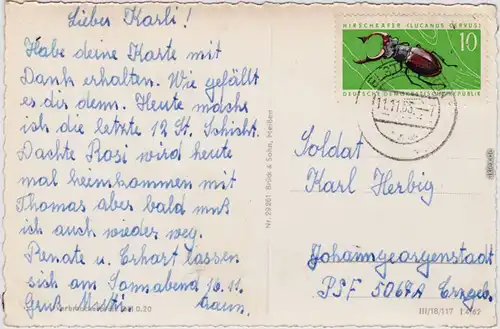 Lieber Karli!
Habe deine Karte mit
Dank erhalten. Wie gefällt
es dir denn. Heute mache
ich die letzte 12 St. Schicht.
Dachte Rosi wird heute
mal heimkommen mit
Thomas aber bald muß
ich auch wieder weg.
Renate u. Erhart lassen
sich am Sonnabend 16.11.
Gruß Mutti traun.
0,20
Nr. 29261 Brück & Sohn, Meißen
HIRSCHKÄFER (LUCANUS CERVUS)
10
DEUTSCHE DEMOKRATISCHE REPUBLIK
11.11.63
Soldat
Karl Herbig
Johanngeorgenstadt
PSF 5068A Erzgeb.
III/18/117